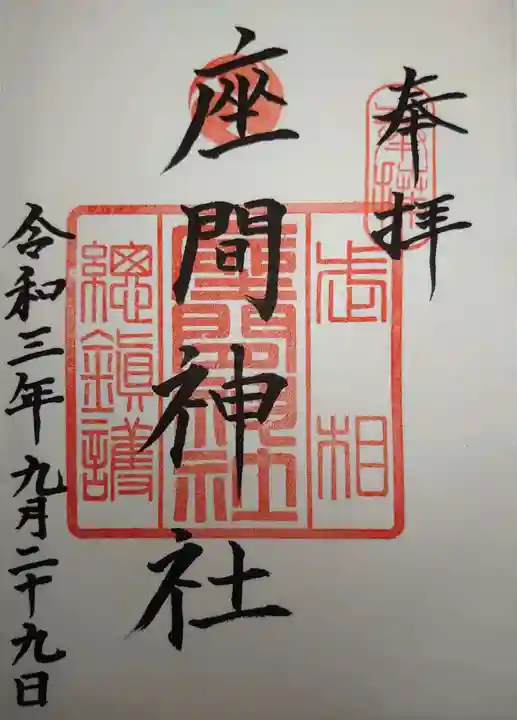 奉拝
武相
座間神社
座間神社
總鎮護
令和三年九月二十九日